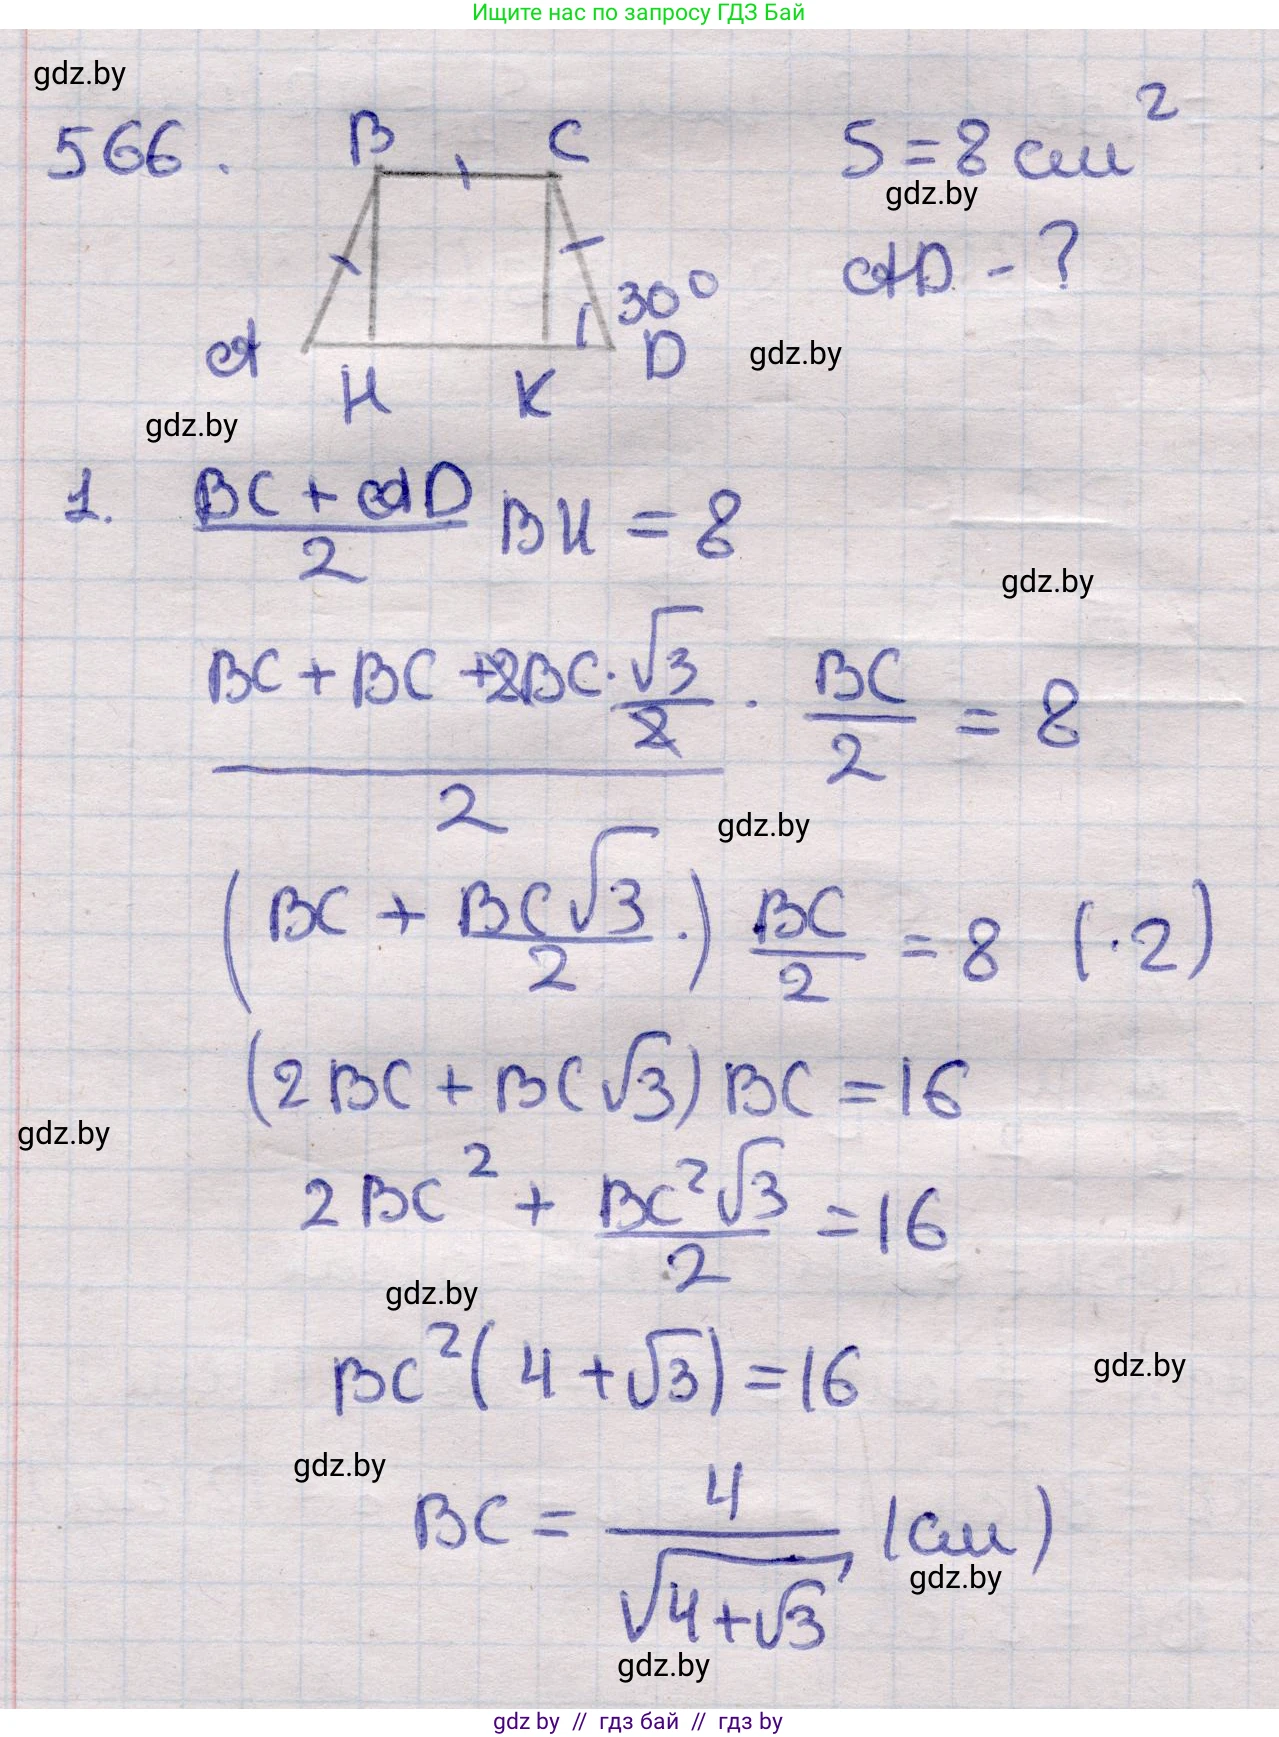 Ищите нас по запросу ГДЗ Бай
gdz.by
566.
B C
S = 8 см²
gdz.by
AD - ?
30°
A H K D
gdz.by
gdz.by
1. (BC + AD)/2 BH = 8
gdz.by
(BC + BC + 2BC · √3/2)/2 · BC/2 = 8
gdz.by
(BC + BC√3/2 ·) BC/2 = 8 (·2)
(2BC + BC√3) BC = 16
gdz.by
2BC² + BC²√3/2 = 16
gdz.by
BC² (4 + √3) = 16
gdz.by
gdz.by
BC = 4/√(4+√3) (см)
gdz.by
gdz.by
gdz by // гдз бай // гдз by